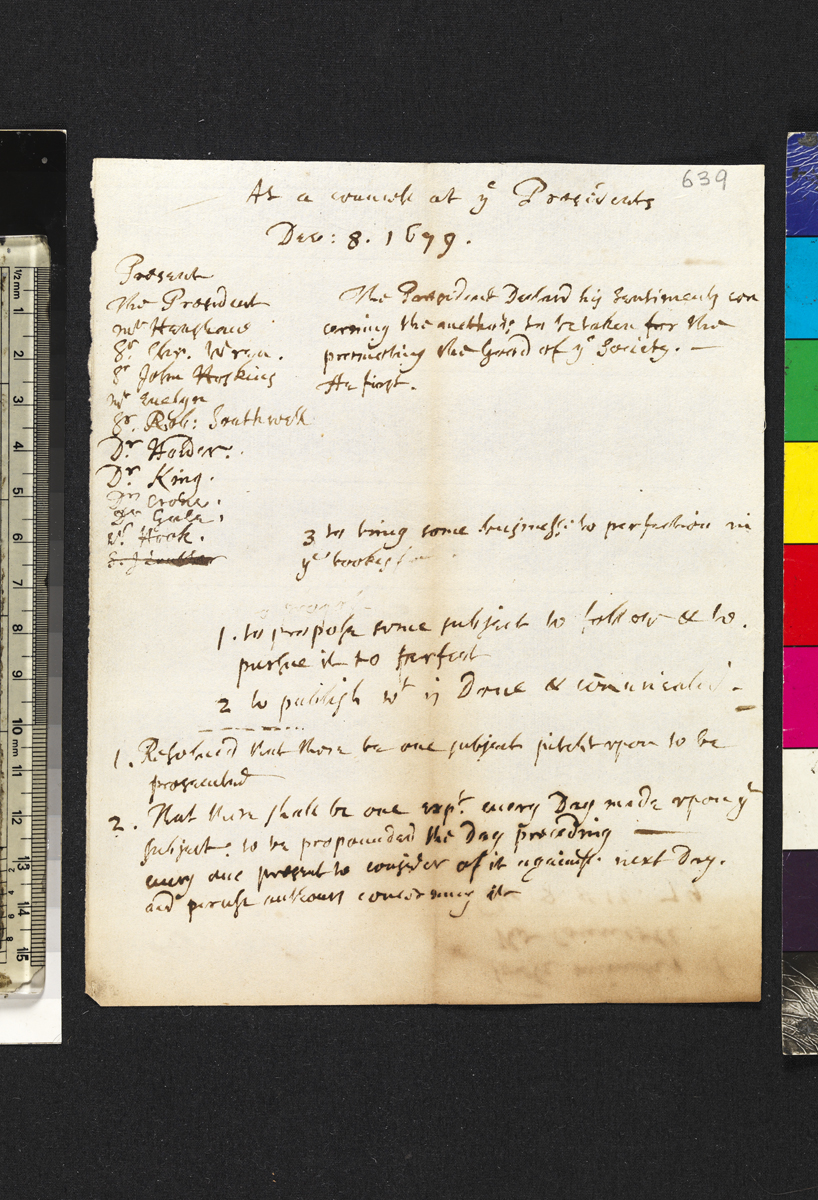 639
At a councell at ye Presidents
Dec: 8. 1679.
Present
The President
mr Henshaw
Sr. Chr. Wren.
Sr John Hoskins
mr Evelyn
Sr. Rob: Southwell
Dr Holder.
Dr King.
Dr Croke.
Dr Gale.
Mr Hook.
The President Declard his sentiments con
cerning the methods to be taken for the
promoting the Good of ye Society. —
As first.
3 to bring some businesse to perfection in
ye books
1. to propose some subject to follow & to.
pursue it to perfect
2 to publish wt is Done & comunicated. —
1. Resolved that there be one subject pitcht upon to be
prosecuted
2. That there shall be one expt. every Day made upon ye
subject. to be propounded the Day preceding —
every one present to consider of it against. next Day.
and peruse authours concerning it